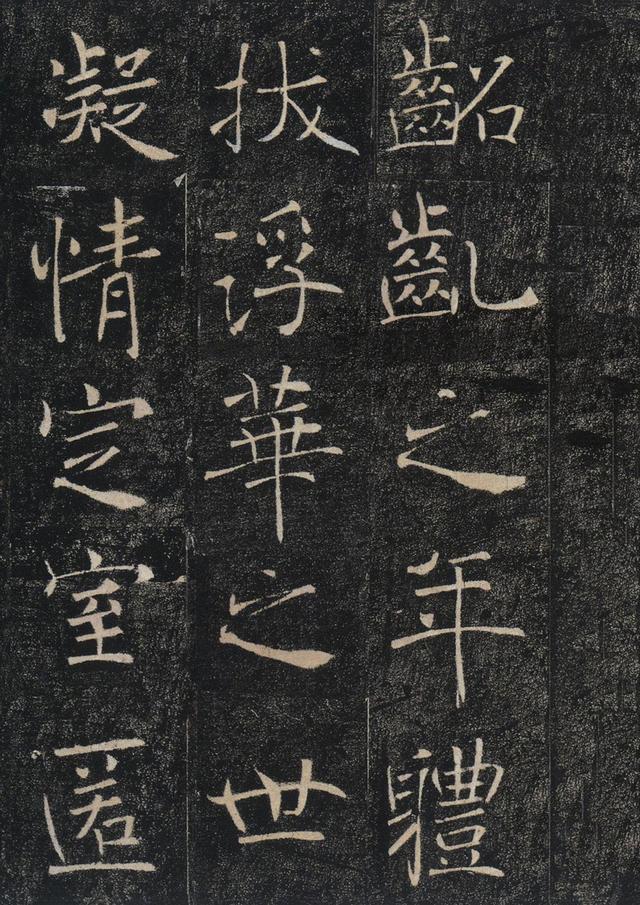 齠齓之年體
拔浮華之世
凝情定室匿